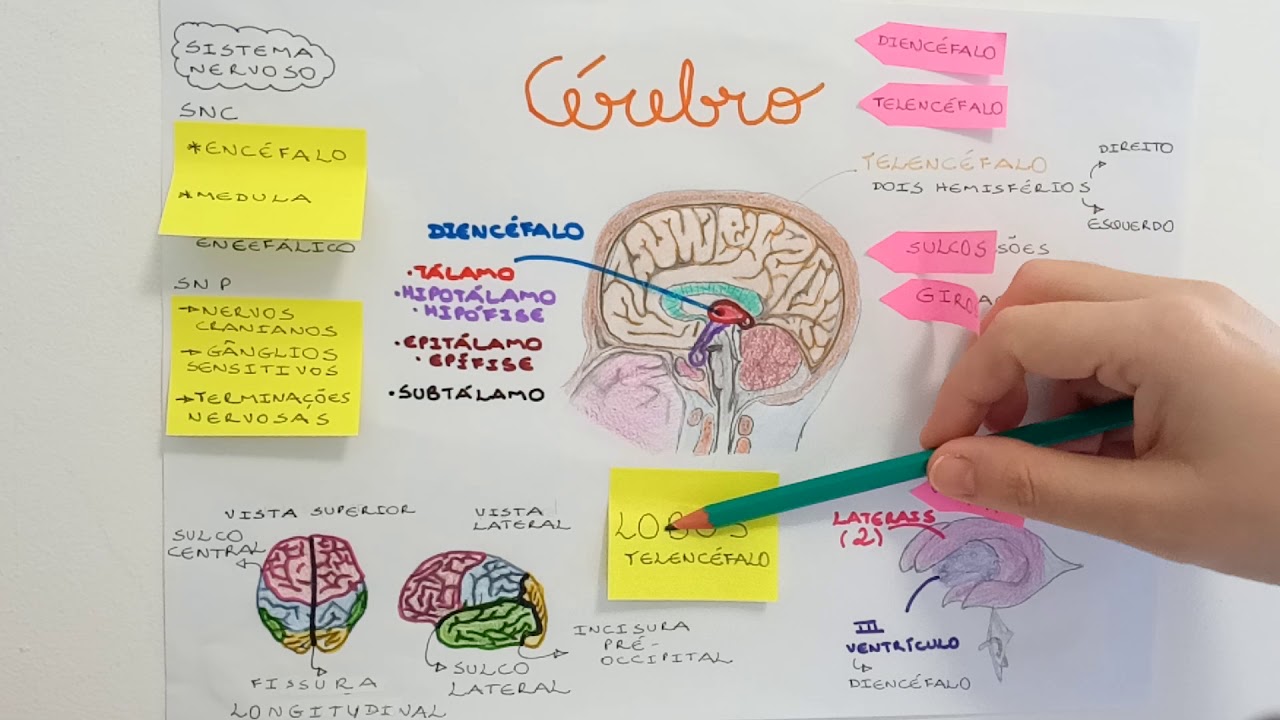 SISTEMA
NERVOSO
SNC
*ENCÉFALO
*MEDULA
ENCEFÁLICO
SNP
→NERVOS
CRANIANOS
→GÂNGLIOS
SENSITIVOS
→TERMINAÇÕES
NERVOSAS
Cérebro
DIENCÉFALO
•TÁLAMO
•HIPOTÁLAMO
•HIPÓFISE
•EPITÁLAMO
•EPÍFISE
•SUBTÁLAMO
DIENCÉFALO
TELENCÉFALO
TELENCÉFALO
DOIS HEMISFÉRIOS
DIREITO
ESQUERDO
SULCOS SÕES
GIROS
VISTA SUPERIOR
SULCO
CENTRAL
FISSURA
LONGITUDINAL
VISTA
LATERAL
SULCO
LATERAL
INCISURA
PRÉ-
OCCIPITAL
LOBOS
TELENCÉFALO
LATERAIS
(2)
III
VENTRÍCULO
DIENCÉFALO